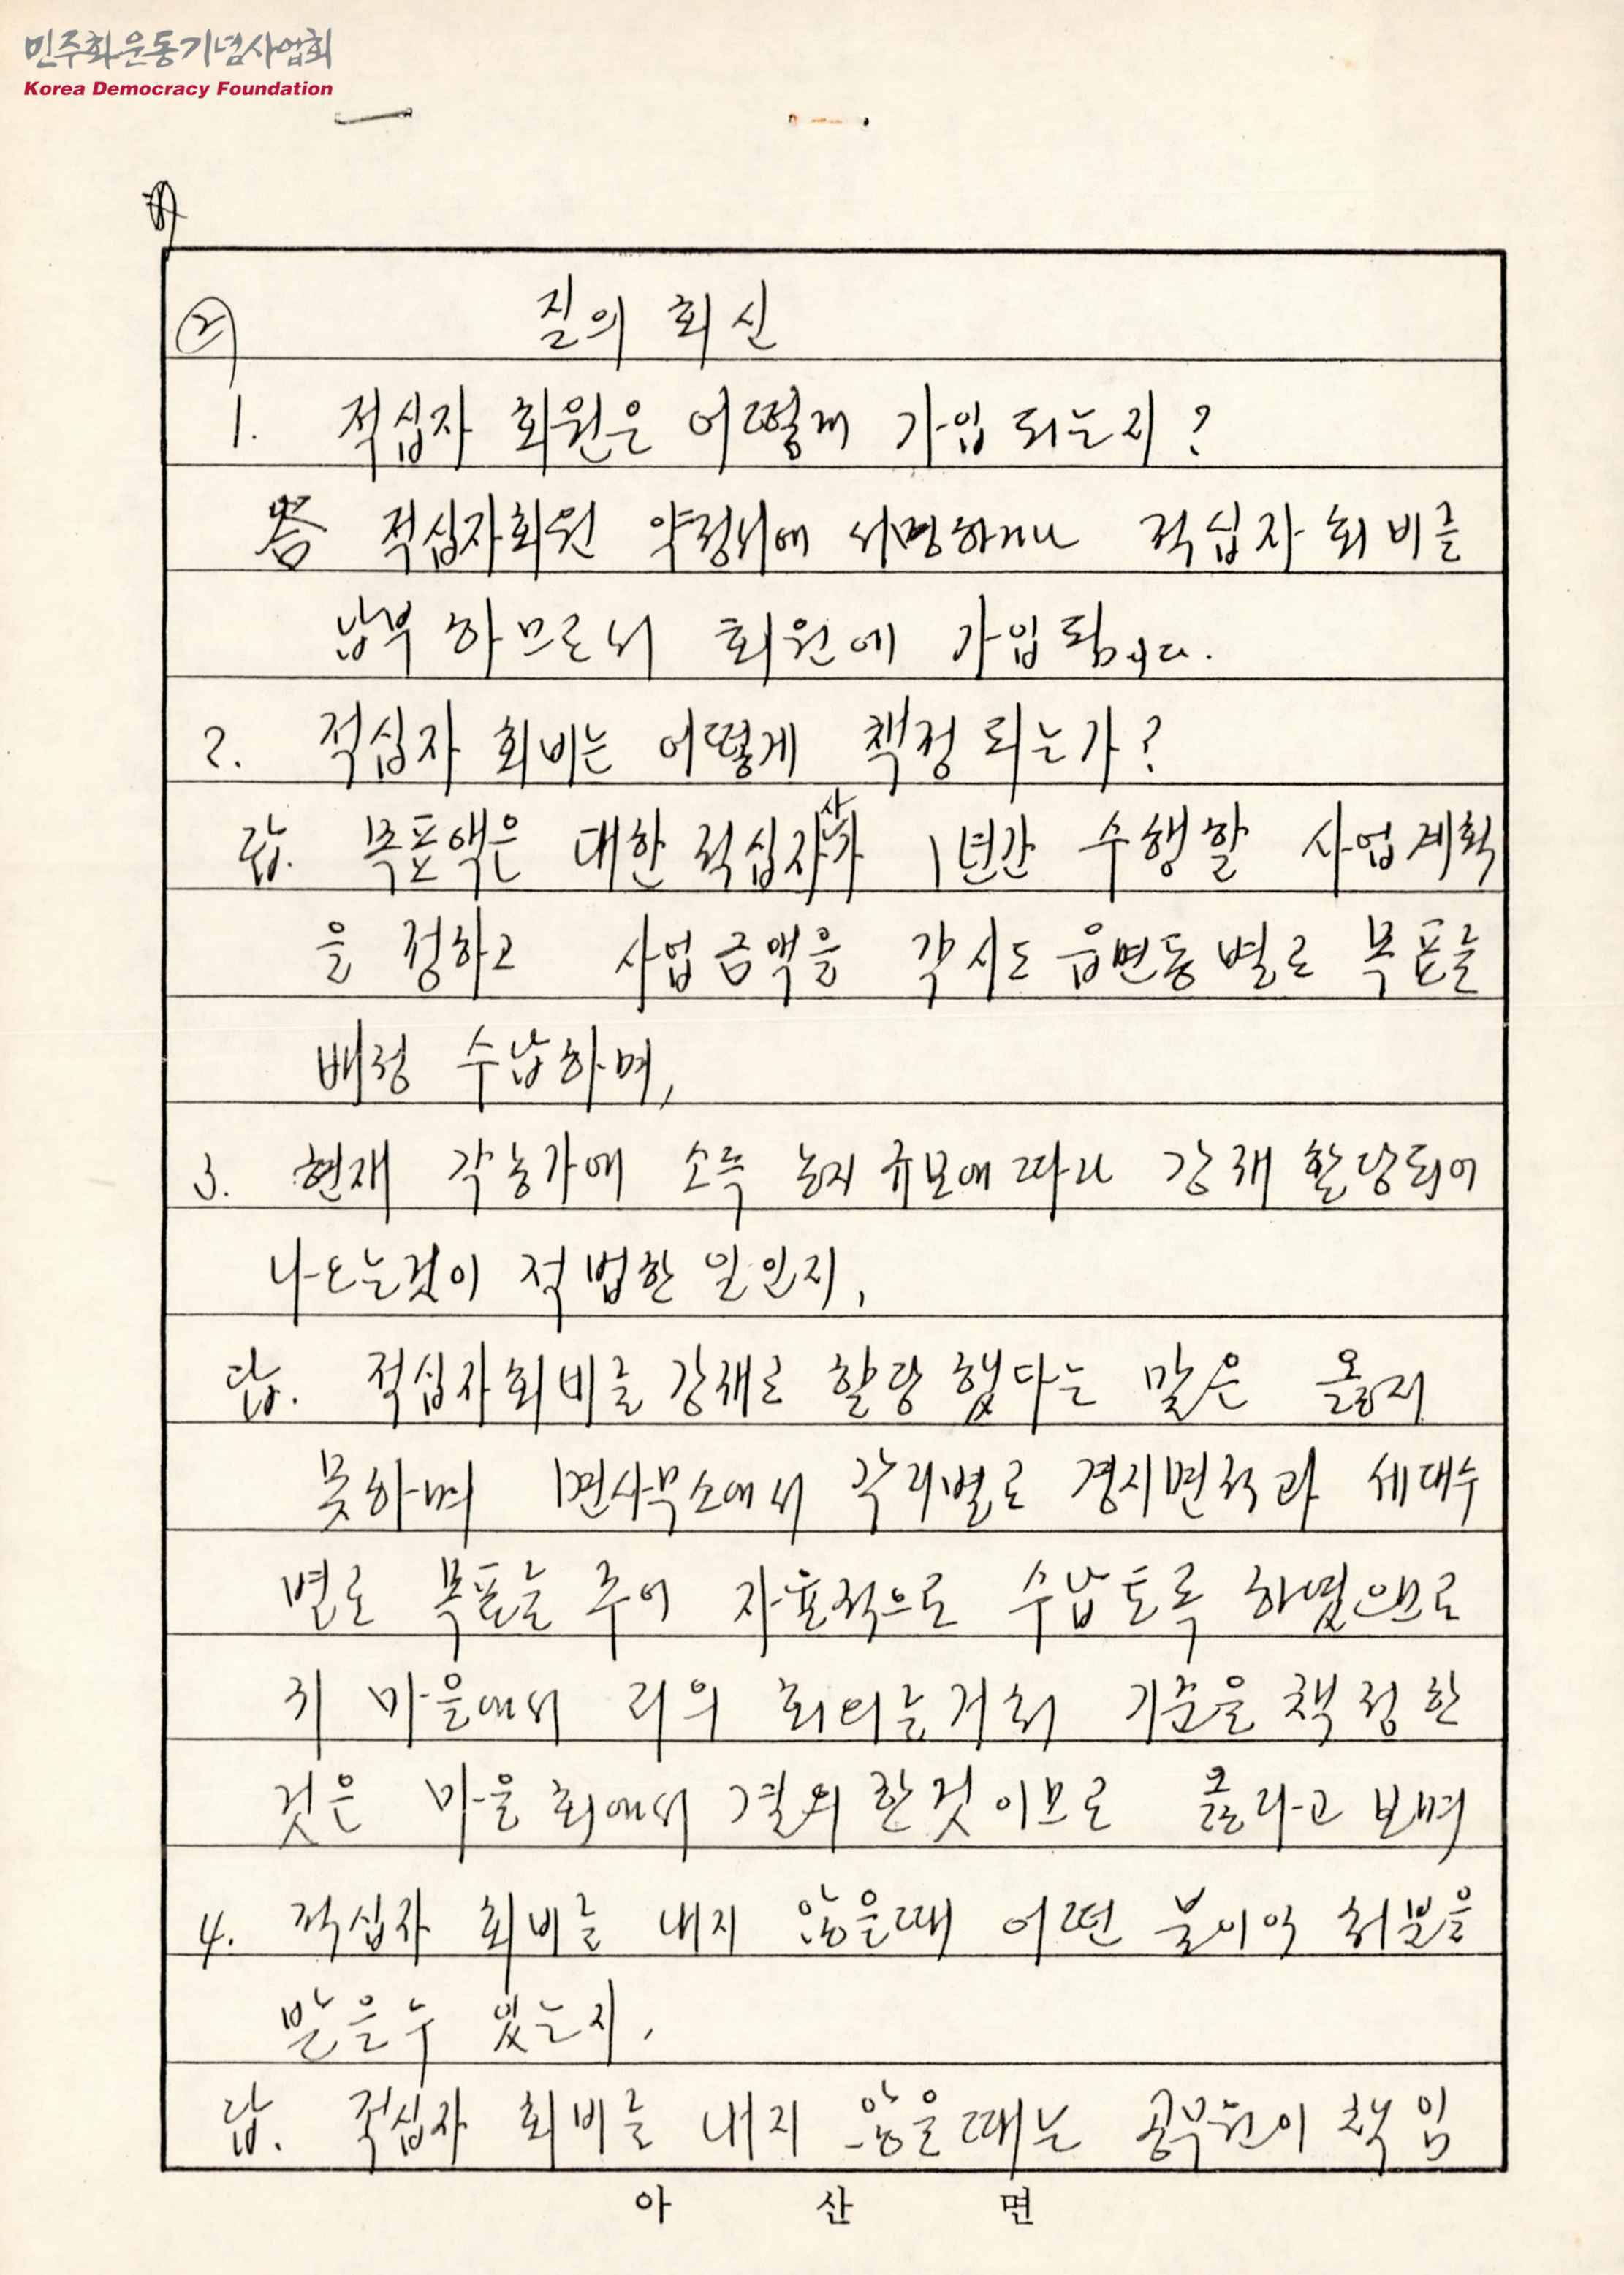 민주화운동기념사업회
Korea Democracy Foundation
② 질의 회신
1. 적십자 회원은 어떻게 가입 되는지?
答 적십자회원 약정서에 서명하거나 적십자 회비를
납부 하므로서 회원에 가입됩니다.
2. 적십자 회비는 어떻게 책정 되는가?
답. 목표액은 대한적십자사가 1년간 수행할 사업계획
을 정하고 사업금액을 각시도 읍면동별로 목표를
배정 수납하며,
3. 현재 각농가에 소득 농지규모에 따라 강재 할당되어
나오는것이 적법한 일인지,
답. 적십자회비를 강재로 할당했다는 말은 옳지
못하며 면사무소에서 각리별로 경지면적과 세대수
별로 목표를 주어 자율적으로 수납토록 하였으므로
귀 마을에서 리의 회의를거처 기준을 책정한
것은 마을회에서 결의한것이므로 옳다고 보며
4. 적십자 회비를 내지 않을때 어떤 불이익 처분을
받을수 있는지,
답. 적십자 회비를 내지 않을때는 공무원이 책임
아산면